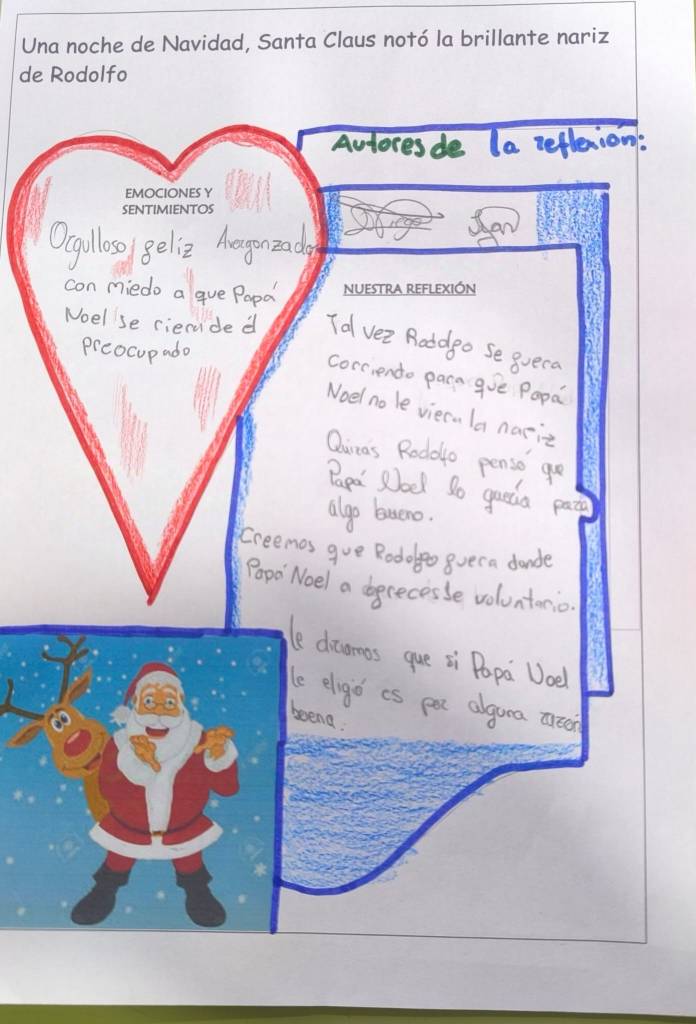 Una noche de Navidad, Santa Claus notó la brillante nariz
de Rodolfo
Autores de la reflexión:
Diego
EMOCIONES Y
SENTIMIENTOS
Orgulloso geliz Avergonzado
con miedo a que Papá
Noel se riera de él
preocupado
NUESTRA REFLEXIÓN
Tal vez Rodolgo se guera
corriendo para que Papá
Noel no le viera la nariz
Quizás Rodolfo pensó que
Papá Noel lo quería para
algo bueno.
Creemos que Rodolgo guera donde
Papá Noel a ogrecerse voluntario.
le diríamos que si Papá Noel
le eligió es por alguna razón
buena.